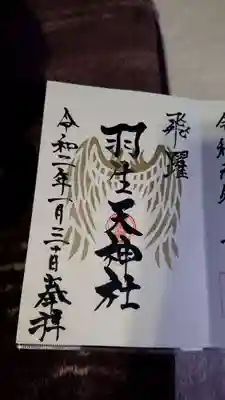 飛躍
羽生天神社
令和二年一月三十日奉拝